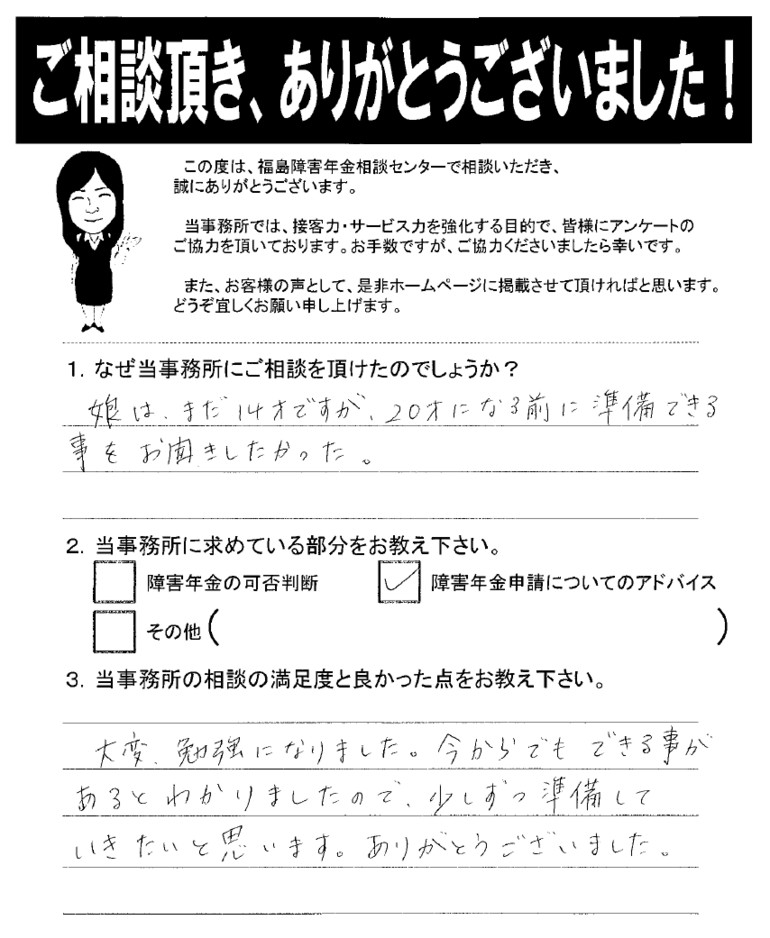 ご相談頂き、ありがとうございました！
この度は、福島障害年金相談センターで相談いただき、
誠にありがとうございます。
当事務所では、接客力・サービス力を強化する目的で、皆様にアンケートの
ご協力を頂いております。お手数ですが、ご協力くださいましたら幸いです。
また、お客様の声として、是非ホームページに掲載させて頂ければと思います。
どうぞ宜しくお願い申し上げます。
1. なぜ当事務所にご相談を頂けたのでしょうか？
娘は、まだ14才ですが、20才になる前に準備できる
事をお聞きしたかった。
2. 当事務所に求めている部分をお教え下さい。
障害年金の可否判断 障害年金申請についてのアドバイス
その他（ ）
3. 当事務所の相談の満足度と良かった点をお教え下さい。
大変、勉強になりました。今からでもできる事が
あるとわかりましたので、少しずつ準備して
いきたいと思います。ありがとうございました。